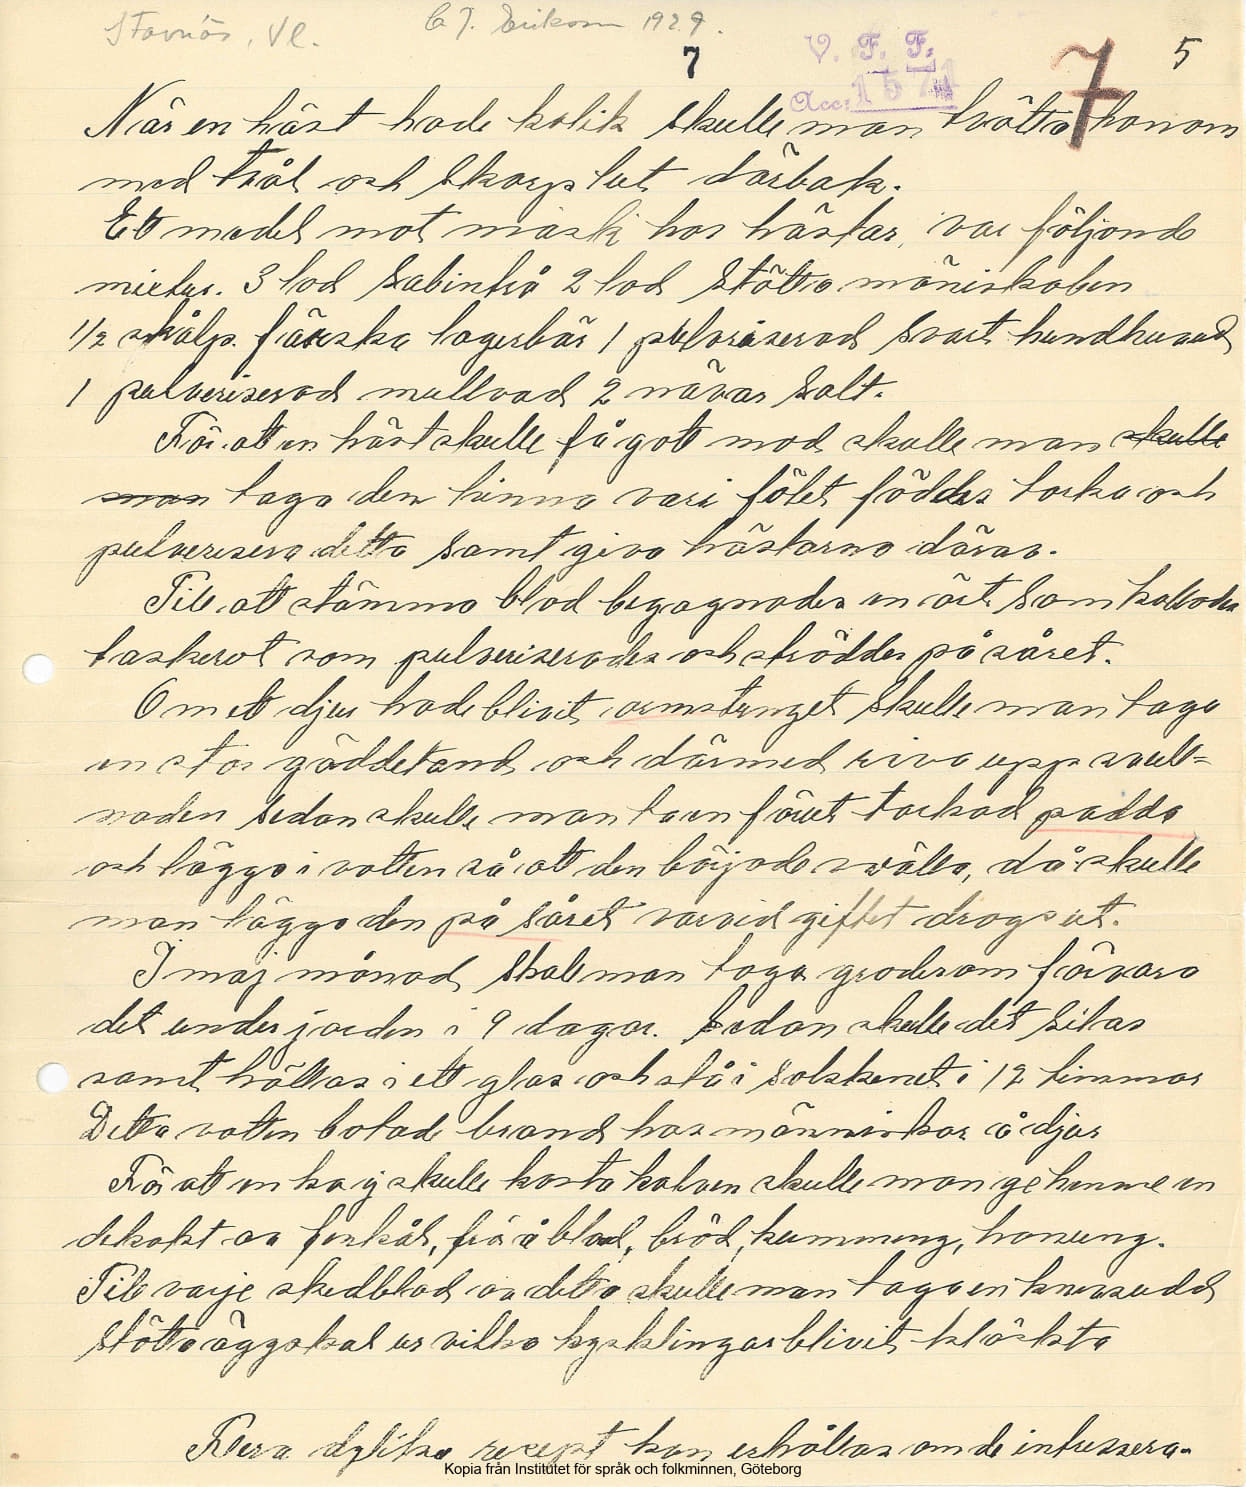 Stavnäs, Vl. C. J. Erikson 1929.
7 V. F. F. 7 5
Acc: 1571
När en häst hade kolik skulle man tvätta honom
med tvål och skarp lut därbak.
Ett medel mot mask hos hästar, var följande
mixtur. 3 lod Sabinträ 2 lod Stötta mäniskoben
1/2 skålp. färska lagerbär 1 pulveriserad svart hundhuvud
1 pulveriserad mullvad 2 nävar salt.
För att en häst skulle få gott mod skulle man skulle
man taga den hinna vari fölet föddes torka och
pulverisera detta samt giva hästarna därav.
Till att stämma blod begagnades en ört som kallades
taskerot som pulveriserades och ströddes på såret.
Om ett djur hade blivit ormstunget skulle man taga
en stor gäddetand och därmed riva upp svull-
naden sedan skulle man ta en förut torkad padda
och lägga i vatten så att den började svälla, då skulle
man lägga den på såret varvid giftet drogs ut.
I maj månad skall man taga groderom förvara
det under jorden i 9 dagar. Sedan skulle det silas
samt hällas i ett glas och stå i solskenet i 12 timmar
Detta vatten botade brand hos människor å djur
För att en ko ej skulle kasta kalven skulle man ge henne en
dekokt av finkål, frö å blad, bröd, kummung, honung.
Till varje skedblad av detta skulle man taga en knivsudd
stötta äggskal ur vilka kycklingar blivit kläckta
Flera dylika recept kan erhållas om de intressera.
Kopia från Institutet för språk och folkminnen, Göteborg